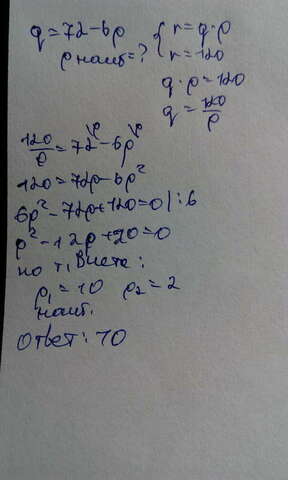 q=72-6p { r=q·p
p наиб=? r=120
q·p=120
q=120/p
120/p=72-6p
120=72p-6p²
6p²-72p+120=0|:6
p²-12p+20=0
по т. Виета:
p₁=10 p₂=2
наиб.
Ответ: 10